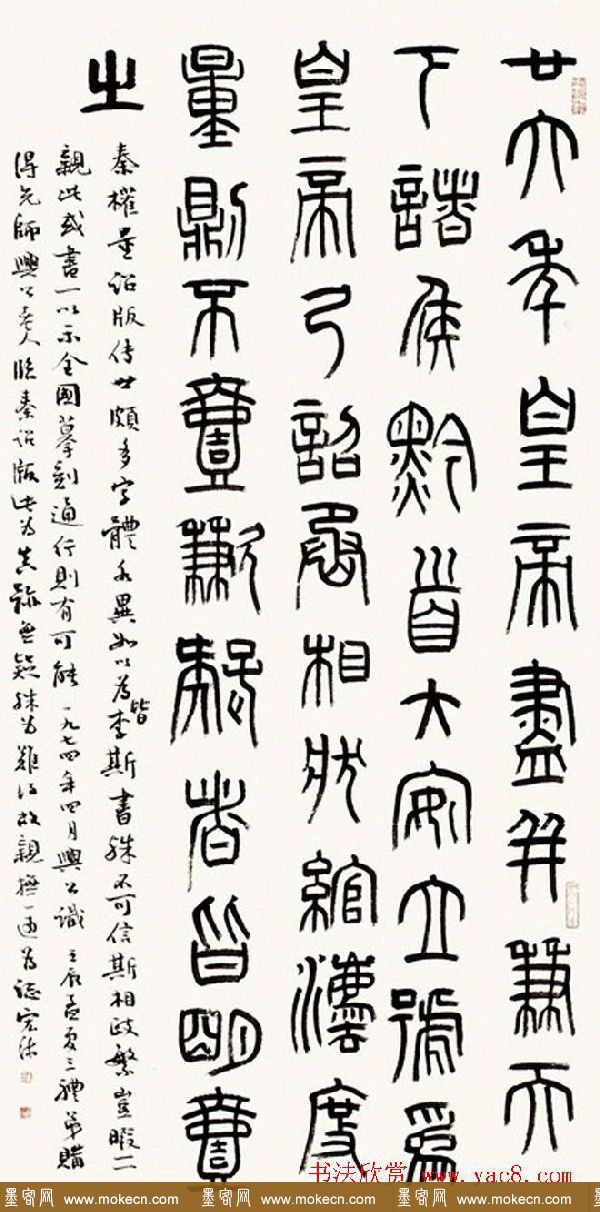 廿六年皇帝盡并兼天
下諸侯黔首大安立號爲
皇帝乃詔丞相狀綰灋度
量則不壹歉疑者皆明壹
之
秦權量詔版傳世頗多字體各異如以為皆李斯書殊不可信斯相政繁豈暇一一
親此或書一以示全國摹刻通行則有可能一九七四年四月興公識 壬辰孟夏三體弟購
得先師興公老人臨秦詔版此為真跡無疑殊為難得故親撫一過為誌
书法欣赏 www.yac8.com
墨客网 www.mokecn.com 墨客网 www.mokecn.com 墨客网 www.mokecn.com